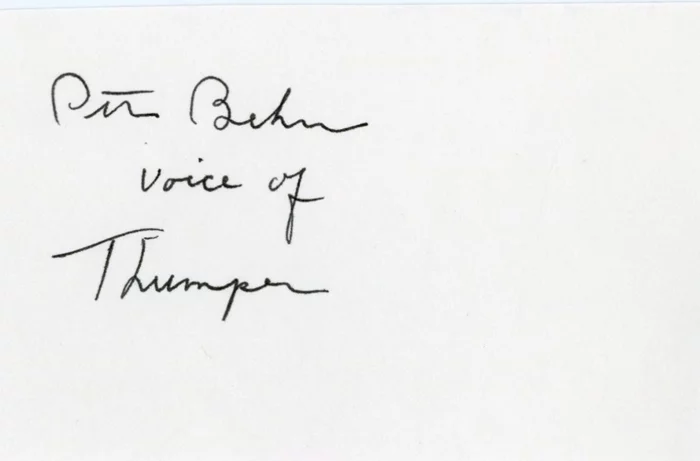 Peter Behn
voice of
Thumper